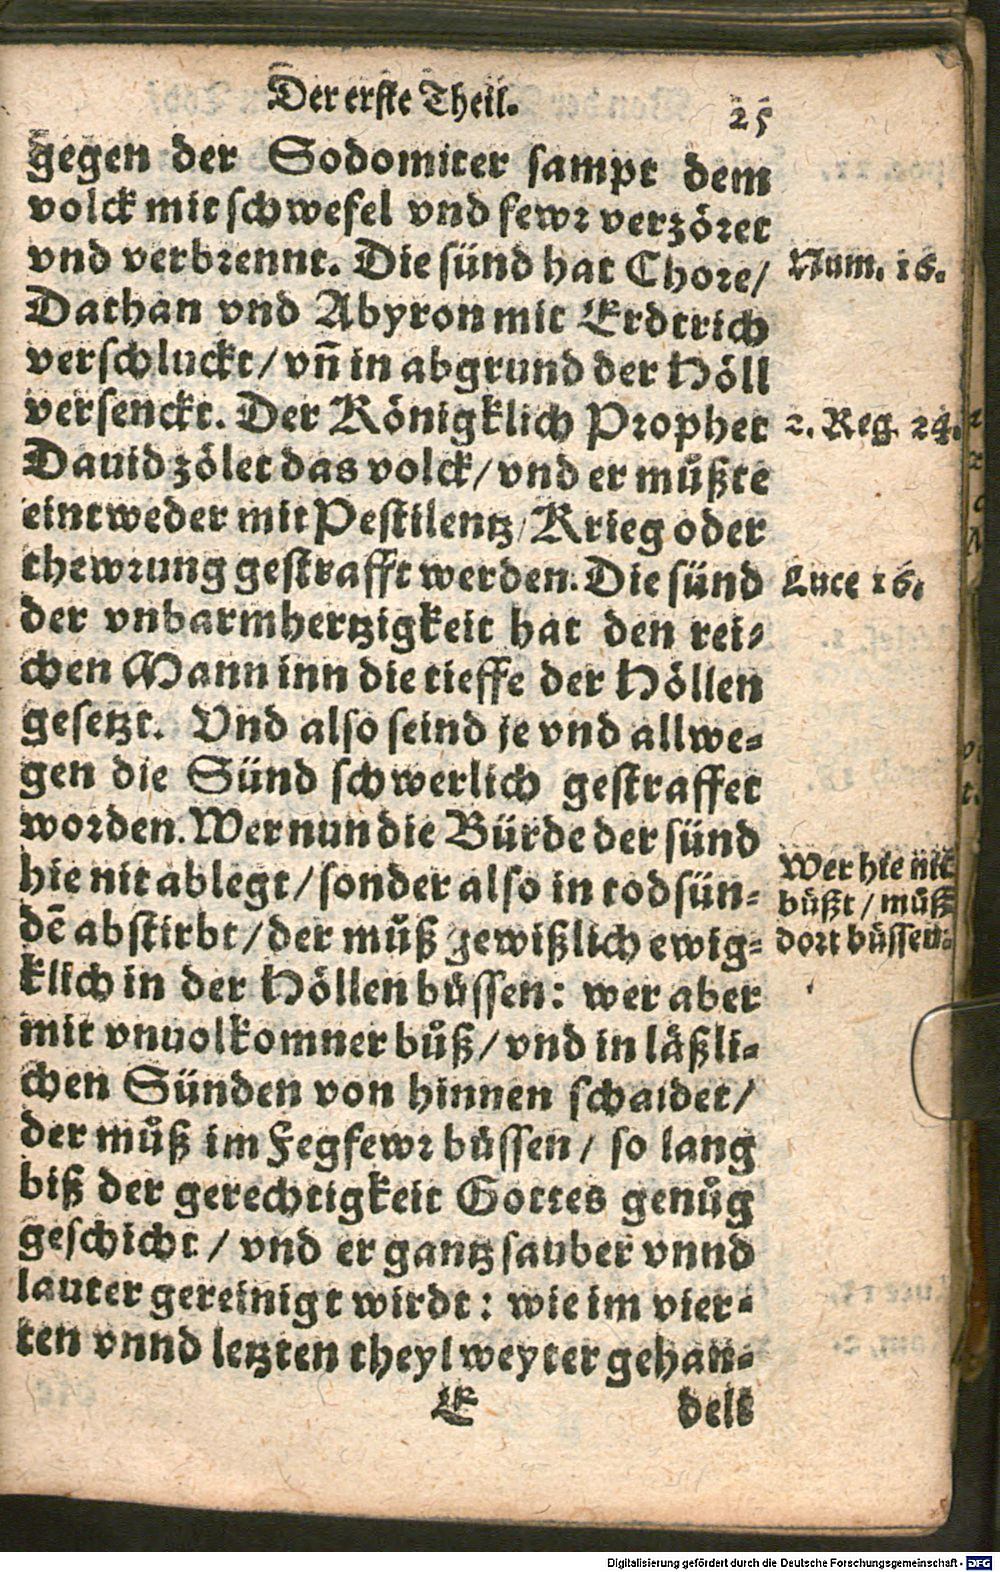 Der erste Theil.
25
gegen der Sodomiter sampt dem
volck mit schwefel vnd fewr verzöret
vnd verbrennt. Die sünd hat Chore/
Num. 16.
Dathan vnd Abyron mit Erdtrich
verschluckt/ vñ in abgrund der Höll
versenckt. Der Königklich Prophet
2. Reg. 24.
Dauid zölet das volck/ vnd er můßte
eintweder mit Pestilentz/ Krieg oder
thewrung gestrafft werden. Die sünd
Luce 16.
der vnbarmhertzigkeit hat den rei-
chen Mann inn die tieffe der Höllen
gesetzt. Vnd also seind je vnd allwe-
gen die Sünd schwerlich gestraffet
worden. Wer nun die Bürde der sünd
hie nit ablegt/ sonder also in todsün-
dẽ abstirbt/ der můß gewißlich ewig-
klich in der Höllen büssen: wer aber
Wer hie nit
büßt/ můß
dort büssen.
mit vnuolkomner bůß/ vnd in läßli-
chen Sünden von hinnen schaidet/
der můß im Fegfewr büssen/ so lang
biß der gerechtigkeit Gottes genůg
geschicht/ vnd er gantz sauber vnnd
lauter gereinigt wirdt: wie im vier-
ten vnnd letzten theyl weyter gehan-
E
delt
Digitalisierung gefördert durch die Deutsche Forschungsgemeinschaft - DFG